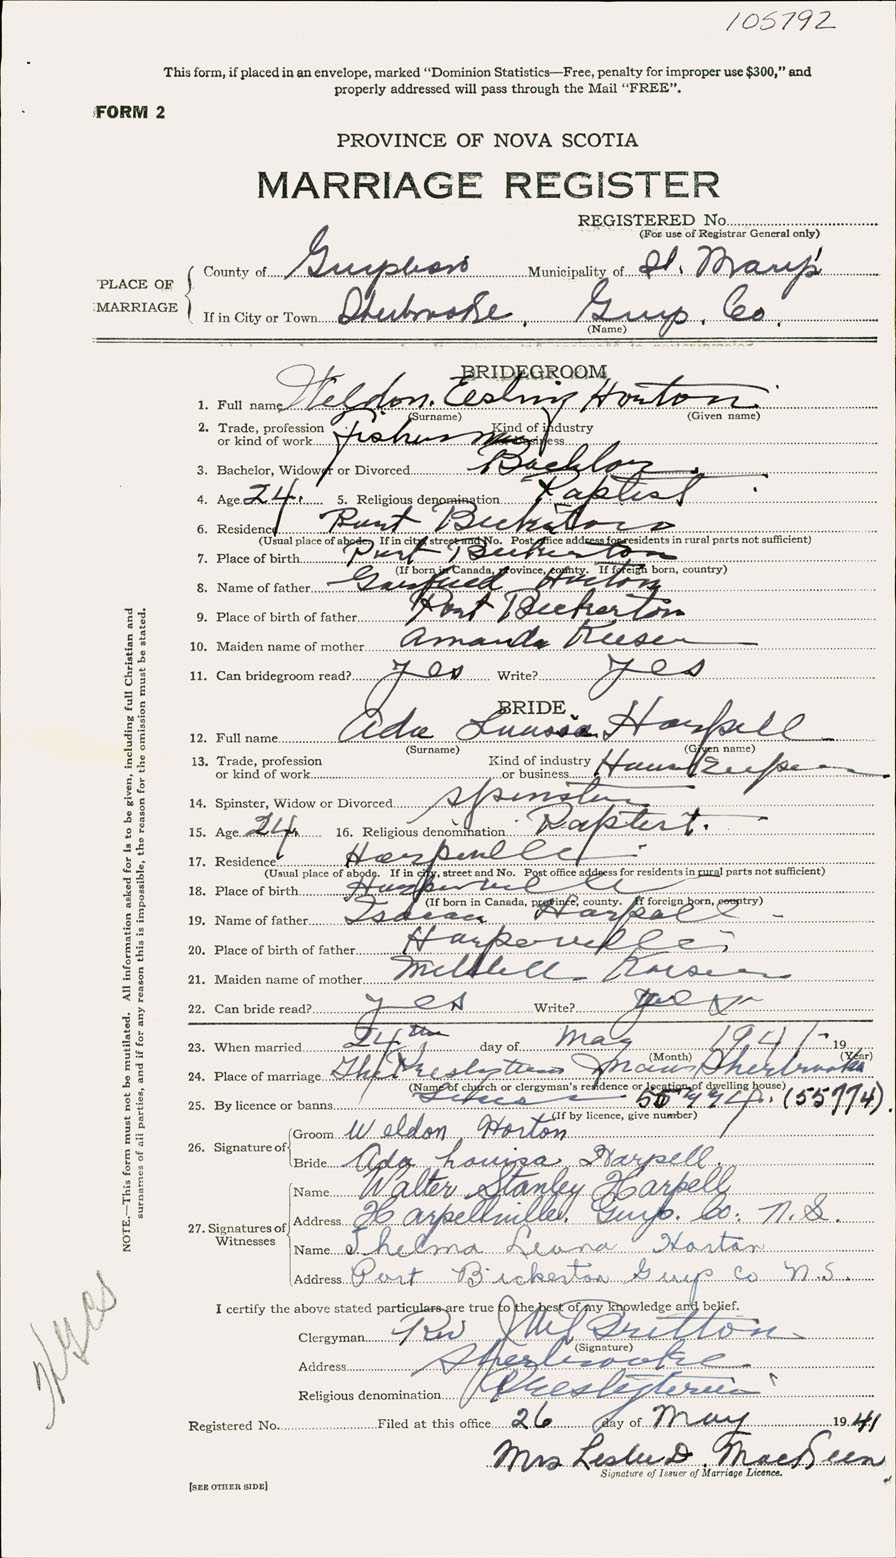 105792
This form, if placed in an envelope, marked "Dominion Statistics—Free, penalty for improper use $300," and
properly addressed will pass through the Mail "FREE".
FORM 2
PROVINCE OF NOVA SCOTIA
MARRIAGE REGISTER
REGISTERED No.
(For use of Registrar General only)
PLACE OF MARRIAGE
County of Municipality of St. Mary's
If in City or Town Sherbrooke, Guys. Co.
(Name)
BRIDEGROOM
1. Full name Weldon Horton
(Surname) (Given name)
2. Trade, profession or kind of work fisherman Kind of industry or business
3. Bachelor, Widower or Divorced Bachlor
4. Age 24. 5. Religious denomination Baptist
6. Residence Port Bickerton
(Usual place of abode. If in city, street and No. Post office address for residents in rural parts not sufficient)
7. Place of birth Port Bickerton
(If born in Canada, province, county. If foreign born, country)
8. Name of father Horton
9. Place of birth of father Port Bickerton
10. Maiden name of mother Amanda
11. Can bridegroom read? yes Write? yes
BRIDE
12. Full name Ada Harpell
(Surname) (Given name)
13. Trade, profession or kind of work Kind of industry or business
14. Spinster, Widow or Divorced Spinster
15. Age 24 16. Religious denomination Baptist.
17. Residence
(Usual place of abode. If in city, street and No. Post office address for residents in rural parts not sufficient)
18. Place of birth
(If born in Canada, province, county. If foreign born, country)
19. Name of father Harpell
20. Place of birth of father
21. Maiden name of mother
22. Can bride read? yes Write? yes
23. When married 24th day of May 1941 19
(Month) (Year)
24. Place of marriage The Presbyterian Manse Sherbrooke
(Name of church or clergyman's residence or location of dwelling house)
25. By licence or banns 55774. (55774).
(If by licence, give number)
26. Signature of
Groom Weldon Horton
Bride Ada Louisa Harpell
27. Signatures of Witnesses
Name Walter Stanley Harpell
Address Harpellville, Guys. Co. N.S.
Name Thelma Leona Horton
Address Port Bickerton Guys Co N.S.
I certify the above stated particulars are true to the best of my knowledge and belief.
Clergyman Rev Britton
(Signature)
Address Sherbrooke
Religious denomination Presbyterian
Registered No. Filed at this office 26 day of May 1941
Mrs Leslie D. MacKeen
Signature of Issuer of Marriage Licence.
[SEE OTHER SIDE]
NOTE.—This form must not be mutilated. All information asked for is to be given, including full Christian and
surnames of all parties, and if for any reason this is impossible, the reason for the omission must be stated.